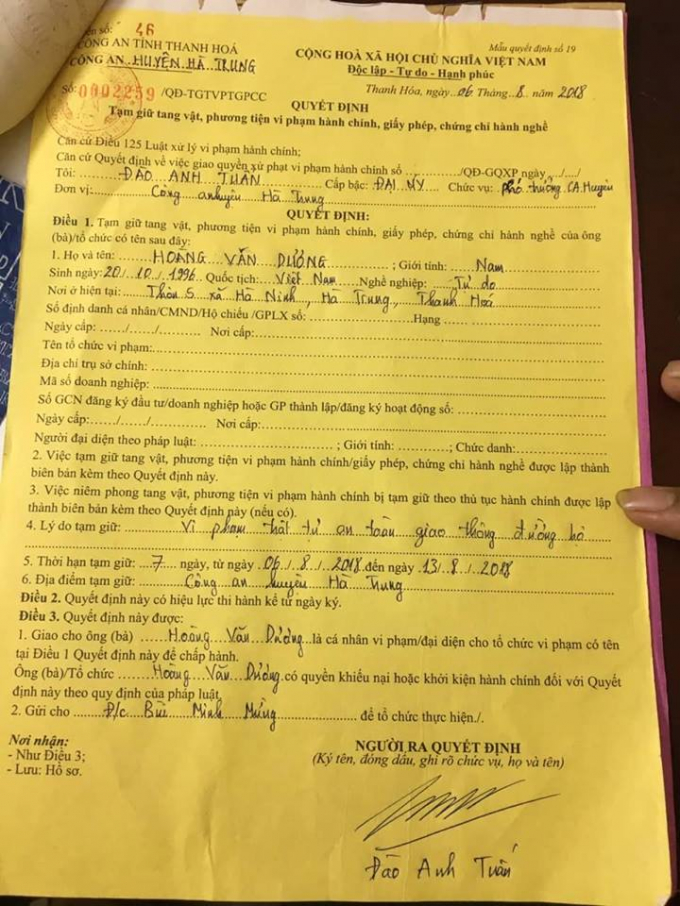 số: 46
CÔNG AN TỈNH THANH HOÁ
CÔNG AN HUYỆN HÀ TRUNG
Số: 0002259 /QĐ-TGTVPTGPCC
Mẫu quyết định số 19
CỘNG HOÀ XÃ HỘI CHỦ NGHĨA VIỆT NAM
Độc lập - Tự do - Hạnh phúc
Thanh Hóa, ngày 06 Tháng 8 năm 2018
QUYẾT ĐỊNH
Tạm giữ tang vật, phương tiện vi phạm hành chính, giấy phép, chứng chỉ hành nghề
Căn cứ Điều 125 Luật xử lý vi phạm hành chính;
Căn cứ Quyết định về việc giao quyền xử phạt vi phạm hành chính số ............/QĐ-GQXP ngày ..../..../
Tôi: ĐÀO ANH TUẤN Cấp bậc: ĐẠI ÚY Chức vụ: Phó trưởng CA. Huyện
Đơn vị: Công an huyện Hà Trung
QUYẾT ĐỊNH:
Điều 1. Tạm giữ tang vật, phương tiện vi phạm hành chính, giấy phép, chứng chỉ hành nghề của ông
(bà)/tổ chức có tên sau đây:
1. Họ và tên: HOÀNG VĂN DƯƠNG ; Giới tính: Nam
Sinh ngày: 20/10/1996 Quốc tịch: Việt Nam Nghề nghiệp: Tự do
Nơi ở hiện tại: Thôn 5 xã Hà Ninh, Hà Trung, Thanh Hoá
Số định danh cá nhân/CMND/Hộ chiếu /GPLX số: ............ Hạng ......
Ngày cấp: ....../....../........ Nơi cấp: ............
Tên tổ chức vi phạm: ............
Địa chỉ trụ sở chính: ............
Mã số doanh nghiệp: ............
Số GCN đăng ký đầu tư/doanh nghiệp hoặc GP thành lập/đăng ký hoạt động số: ............
Ngày cấp: ....../....../........ Nơi cấp: ............
Người đại diện theo pháp luật: ............ ; Giới tính: ............ ; Chức danh: ............
2. Việc tạm giữ tang vật, phương tiện vi phạm hành chính/giấy phép, chứng chỉ hành nghề được lập thành
biên bản kèm theo Quyết định này.
3. Việc niêm phong tang vật, phương tiện vi phạm hành chính bị tạm giữ theo thủ tục hành chính được lập
thành biên bản kèm theo Quyết định này (nếu có).
4. Lý do tạm giữ: Vi phạm trật tự an toàn giao thông đường bộ
5. Thời hạn tạm giữ: 7 ngày, từ ngày 06/8/2018 đến ngày 13/8/2018
6. Địa điểm tạm giữ: Công an huyện Hà Trung
Điều 2. Quyết định này có hiệu lực thi hành kể từ ngày ký.
Điều 3. Quyết định này được:
1. Giao cho ông (bà) Hoàng Văn Dương là cá nhân vi phạm/đại diện cho tổ chức vi phạm có tên
tại Điều 1 Quyết định này để chấp hành.
Ông (bà)/Tổ chức Hoàng Văn Dương có quyền khiếu nại hoặc khởi kiện hành chính đối với Quyết
định này theo quy định của pháp luật.
2. Gửi cho Đ/c Bùi Minh Mừng để tổ chức thực hiện./.
Nơi nhận:
- Như Điều 3;
- Lưu: Hồ sơ.
NGƯỜI RA QUYẾT ĐỊNH
(Ký tên, đóng dấu, ghi rõ chức vụ, họ và tên)
Đào Anh Tuấn